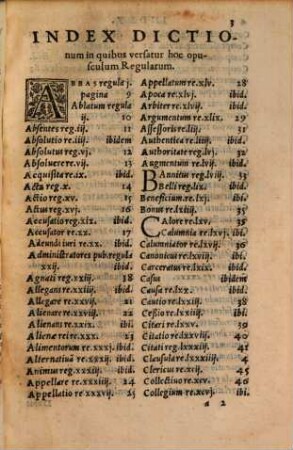 3
INDEX DICTIO-
num in quibus versatur hoc opu-
sculum Regularum.
ABBAS regulæ j.
pagina 9
Ablatum regula
ij. 10
Absentes reg. iij. 11
Absolutio re. iiij. ibidem
Absolutus reg. vj. 12
Absoluere re. vij. 13
Acquisita re. ix. ibid.
Acta reg. x. 14
Actio reg. xv. 15
Actus reg. xvj. 16
Accusatio reg. xix. ibid.
Accusator re. xx. 17
Adeundi iuri re. xxj. ibid.
Administratores pub. regula
xxij. ibid.
Agnati reg. xxiij. 18
Allegans re. xxiiij. ibid.
Allegare re. xxvij. 21
Alienare re. xxvij. ibi.
Alienans re. xxix. ibi.
Alienæ rei re. xxx. ibi.
Alimentorum re. xxxj. ibi.
Alternatiua re. xxxij. ibid.
Animus reg. xxxiij. ibid.
Appellare re. xxxiiij. 24
Appellatio re. xxxvij. 25
Appellatum re. xlv. 28
Apoca re. xlvj. ibid.
Arbiter re. xlvij. ibid.
Argumentum re. xlix. 29
Assessoris re. liij. 31
Authentica re. liiij. ibid.
Authoritate reg. lv. ibid.
Augmentum re. lvij. ibid.
Bannitus reg. lvij. 35
Belli reg. lix. ibid.
Beneficium. re. lxj. ibi.
Bonus re. lxiij. 35
Calore re. lxv. 36
Calumnia re. lxvj. ibi.
Calumniator re. lxvij. ibi.
Canonicus re. lxvij. ibi.
Carceratus re. lxix. ibid.
Casus ibidem
Causa re. lxx. ibid.
Cautio re. lxxiij. 38
Cessio re. lxxiiij. ibid.
Citari re. lxxv. 39
Citatio re. lxxvij. 40
Citati reg. lxxxij. 41
Clausula re. lxxxiiij. 4
Clericus re. xcij. 45
Collectiuo re. xcv. 46
Collegium re. xcvj. ibi.
a 2